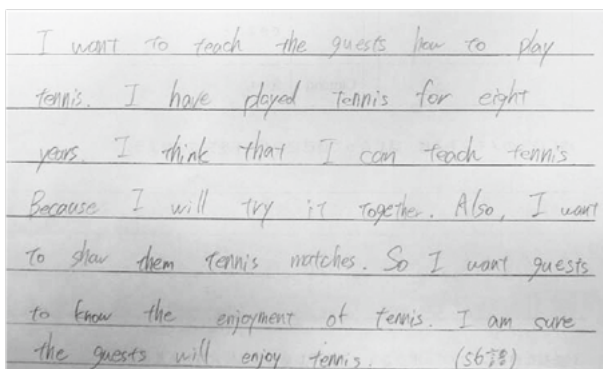 I want to teach the guests how to play
tennis. I have played tennis for eight
years. I think that I can teach tennis.
Because I will try it together. Also, I want
to show them tennis matches. So I want guests
to know the enjoyment of tennis. I am sure
the guests will enjoy tennis. (56語)